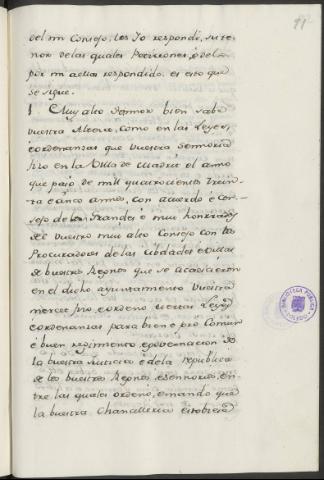 del mi Consejo, les Yo respondi, su te-
nor de las quales Peticiones, é de lo
por mi a ellas respondido, es esto que
se sigue.
1. Muy alto Señor bien sabe
vuestra Alteza, como en las Leyes,
é ordenanzas que vuestra Señoria
fizo en la Villa de Madrid el año
que pasó de mill quatrocientos trein-
ta é cinco años, con acuerdo é Con-
sejo de los Grandes é muy honrrados
de vuestro muy alto Consejo con los
Procuradores de las cibdades é villas
de vuestros Regnos que se acaescieron
en el dicho ayuntamiento vuestra
merced fizo, é ordenó ciertas Leyes,
é ordenanzas para bien é pró Comun
é buen regimiento, é governacion de
la vuestra justicia é de la republica
de los vuestros Regnos, é Señorios, en-
tre las quales ordenó, é mandó que
la vuestra Chancilleria estobiese
BIBLIOTECA PUBLICA
TOLEDO